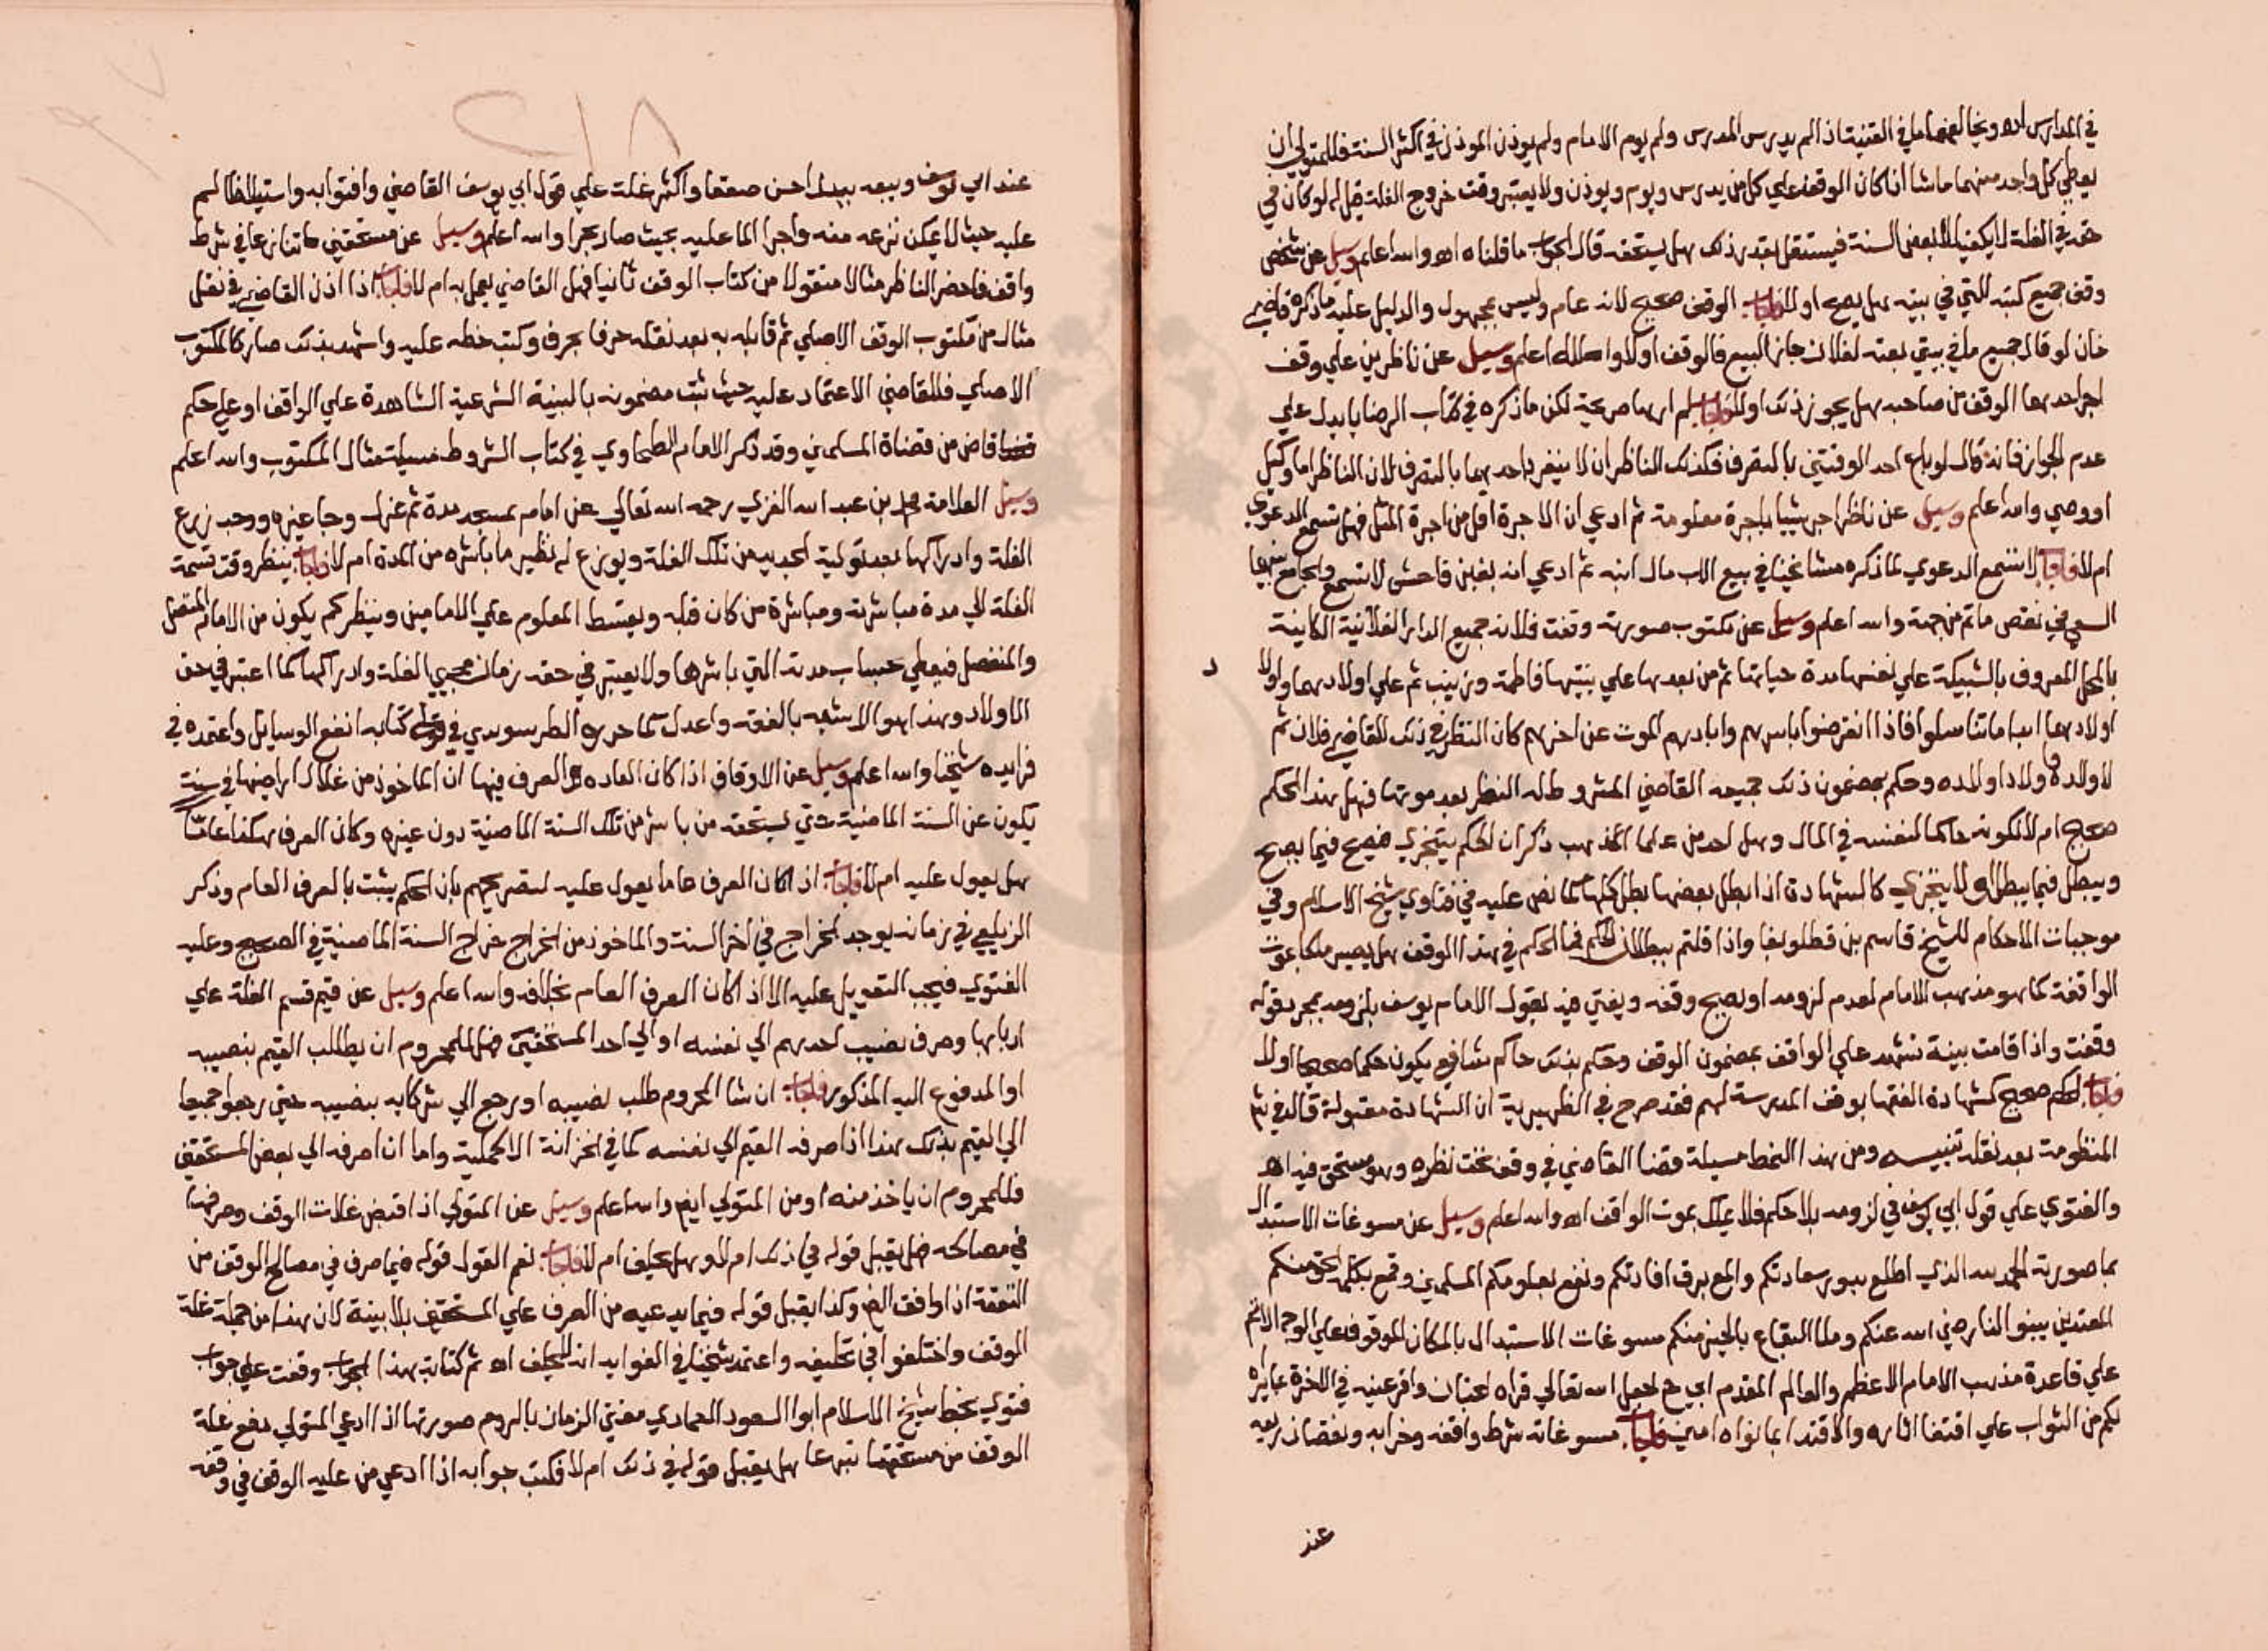 في المدارس اه ويخالفه ما في القنية اذا لم يدرس المدرس ولم يوم الامام ولم يوذن الموذن في اكثر السنة فللمتولي ان
يعطي كل واحد منهما ماشا ان كان الوقف علي كل من يدرس ويوم ويوذن ولا يعتبر وقت خروج الغلة قيل له لو كان في
حقه في الغلة لا يكفيه الا بعض السنة فيستقل بقدر ذلك هل يستحقه قال الجواب ما قلناه اه والله اعلم وسيل عن شخص
وقف جميع كتبه التي في بيته هل يصح اولا فاجاب الوقف صحيح لانه عام وليس بمجهول والدليل عليه ما ذكره قاضي
خان لو قال جميع ما في بيتي بعته لفلان جاز البيع فالوقف اولا والله اعلم وسيل عن ناظرين علي وقف
اجر احدهما الوقف من صاحبه هل يجوز ذلك اولا فاجاب لم ارها صريحة لكن ما ذكره في كتاب الوصايا يدل علي
عدم الجواز فانه قال لو باع احد الوصيين بالتصرف فكذلك الناظران لا ينفرد احدهما بالتصرف لان الناظر اما وكيل
او وصي والله اعلم وسيل عن ناظر اجر شيا باجرة معلومة ثم ادعي ان الاجرة اقل من اجرة المثل فهل تسمع الدعوي
ام لا فاجاب لا تسمع الدعوي لما ذكره مشايخنا في بيع الاب مال ابنه ثم ادعي انه بغبن فاحش لا تسمع والجامع بينهما
السعي في نقض ما تم من جهته والله اعلم وسيل عن مكتوب صورته وقفت فلانه جميع الدار الفلانية الكاينة
بالمحل المعروف بالشبيكة علي نفسها مدة حياتها ثم من بعدها علي بنتيها فاطمة وزينب ثم علي اولادهما واولاد
اولادهما ابدا ما تناسلوا فاذا انقرضوا باسرهم وابادهم الموت عن اخرهم كان النظر في ذلك للقاضي فلان ثم
لاولاده واولاد اولاده وحكم بمضمون ذلك جميعه القاضي المشروط له النظر بعد موتها فهل هذا الحكم
صحيح ام لا لكونه حاكما لنفسه في المال وهل احد من علما المذهب ذكر ان الحكم يتجزي فيصح فيما يصح
ويبطل فيما يبطل او لا يتجزي كالشهادة اذا بطل بعضها بطل كلها كما نص عليه في فتاوي شيخ الاسلام وفي
موجبات الاحكام للشيخ قاسم بن قطلوبغا واذا قلتم ببطلان الحكم فما الحكم في هذا الوقف هل يصير ملكا بموت
الواقفة كما هو مذهب الامام لعدم لزومه او يصح وقفه ويفتي فيه بقول الامام يوسف بلزومه بمجرد قوله
وقفت واذا قامت بينة تشهد علي الواقف بمضمون الوقف وحكم بذلك حاكم شافعي يكون حكما صحيحا اولا
فاجاب الحكم صحيح كشهادة الفقها بوقف المدرسة لهم فقد صرح في الظهيرية ان الشهادة مقبولة قال في شرح
المنظومة بعد نقله تنبيه ومن هذا النمط مسيلة قضا القاضي في وقف تحت نظره وهو مستحق فيه اه
والفتوي علي قول ابي يوسف في لزومه بلا حكم فلا يملك بموت الواقف اه والله اعلم وسيل عن مسوغات الاستبدال
بما صورته الحمد لله الذي اطلع بدور سعادتكم والمع برق افادتكم ونفع بعلومكم المسلمين وقمع بكلمة الحق منكم
المعتدين بينوا لنا رضي الله عنكم وملا البقاع بالخير منكم مسوغات الاستبدال بالمكان الموقوف علي الوجه الاتم
علي قاعدة مذهب الامام الاعظم والعالم المقدم ابي ح جعل الله تعالي قراه الجنان واقر عينه في الاخرة بما يراه
لكم من الثواب علي اقتفا اثاره والاقتدا بما نواه امين فاجاب مسوغاته شرط واقفه وخرابه ونقصان ريعه
عند
عند ابي يوسف وبيعه ببدل احسن صقعا واكثر غلة علي قول ابي يوسف القاضي وافتوا به واستيلا ظالم
عليه حيث لا يمكن نزعه منه واجرا الما عليه بحيث صار بحرا والله اعلم وسيل عن مستحقين تنازعا في شرط
واقف فاحضر الناظر مثالا منقولا من كتاب الوقف ثانيا فهل القاضي يعمل به ام لا فاجاب اذا اذن القاضي في نقل
مثال من مكتوب الوقف الاصلي ثم قابله به بعد نقله حرفا بحرف وكتب خطه عليه واشهد بذلك صار كالمكتوب
الاصلي فللقاضي الاعتماد عليه حيث ثبت مضمونه بالبينة الشرعية الشاهدة علي الواقف او علي حكم
قاض من قضاة المسلمين وقد ذكر الامام الطحاوي في كتاب الشروط مسيلة مثال المكتوب والله اعلم
وسيل العلامة محمد بن عبد الله الغزي رحمه الله تعالي عن امام بمسجد مدة ثم عزل وجا غيره ووجد زرع
الغلة وادراكها بعد تولية الجديد من تلك الغلة ويوزع له نظير ما باشره من المدة ام لا فاجاب ينظر وقت قسمة
الغلة الي مدة مباشرته ومباشرة من كان قبله ويقسط المعلوم علي الامامين وينظر كم يكون من الامام المتصل
والمنفصل فيعطي حساب مدته التي باشرها ولا يعتبر في حقه زمان مجيي الغلة وادراكها كما اعتبر في حق
الاولاد وهذا هو الاشبه بالفقه واعدل كما حرره الطرسوسي في كتابه انفع الوسايل واعتمده في
فوايده شيخنا والله اعلم وسيل عن الاوقاف اذا كان العاده والعرف فيها ان الماخوذ من غلال اراضيها في سنة
يكون عن السنة الماضية حتي يستحقه من باشر من تلك السنة الماضية دون غيره وكان العرف هكذا عاما
هل يعول عليه ام لا فاجاب اذا كان العرف عاما يعول عليه لتصريحهم بان الحكم يثبت بالعرف العام وذكر
الزيلعي في زمانه يوجد الخراج في اخر السنة والماخوذ من الخراج خراج السنة الماضية في الصحيح وعليه
الفتوي فيجب التعويل عليه الا اذا كان العرف العام بخلافه والله اعلم وسيل عن قيم قسم الغلة علي
اربابها وصرف نصيب احدهم الي نفسه او الي احد المستحقين فهل للمحروم ان يطالب القيم بنصيبه
او المدفوع اليه المذكور فاجاب ان شا المحروم طلب نصيبه او رجع الي شركايه بنصيبه حتي رجعوا جميعا
الي القيم بذلك هذا اذا صرفه القيم الي نفسه كما في الخزانة الاكملية واما ان صرفه الي بعض المستحقين
فللمحروم ان ياخذ منه او من المتولي ايضا والله اعلم وسيل عن المتولي اذا قبض غلات الوقف وصرفها
في مصالحه هل يقبل قوله في ذلك ام لا وهل يحلف ام لا فاجاب نعم القول قوله فيما صرف في مصالح الوقف من
النفقة اذا وافق الظ وكذا يقبل قوله فيما يدعيه من الصرف علي المستحقين بلا بينة لان هذا من جملة غلة
الوقف واختلفوا في تحليفه واعتمد شيخنا في الفوايد انه لا يحلف اه ثم كتابة هذا الجواب وقفت علي جواب
فتوي بخط شيخ الاسلام ابوا السعود العمادي مفتي الزمان بالروم صورتها اذا ادعي المتولي دفع غلة
الوقف من مستحقها شرعا هل يقبل قوله في ذلك ام لا فكتب جوابه اذا ادعي من عليه الوقف في وقفه